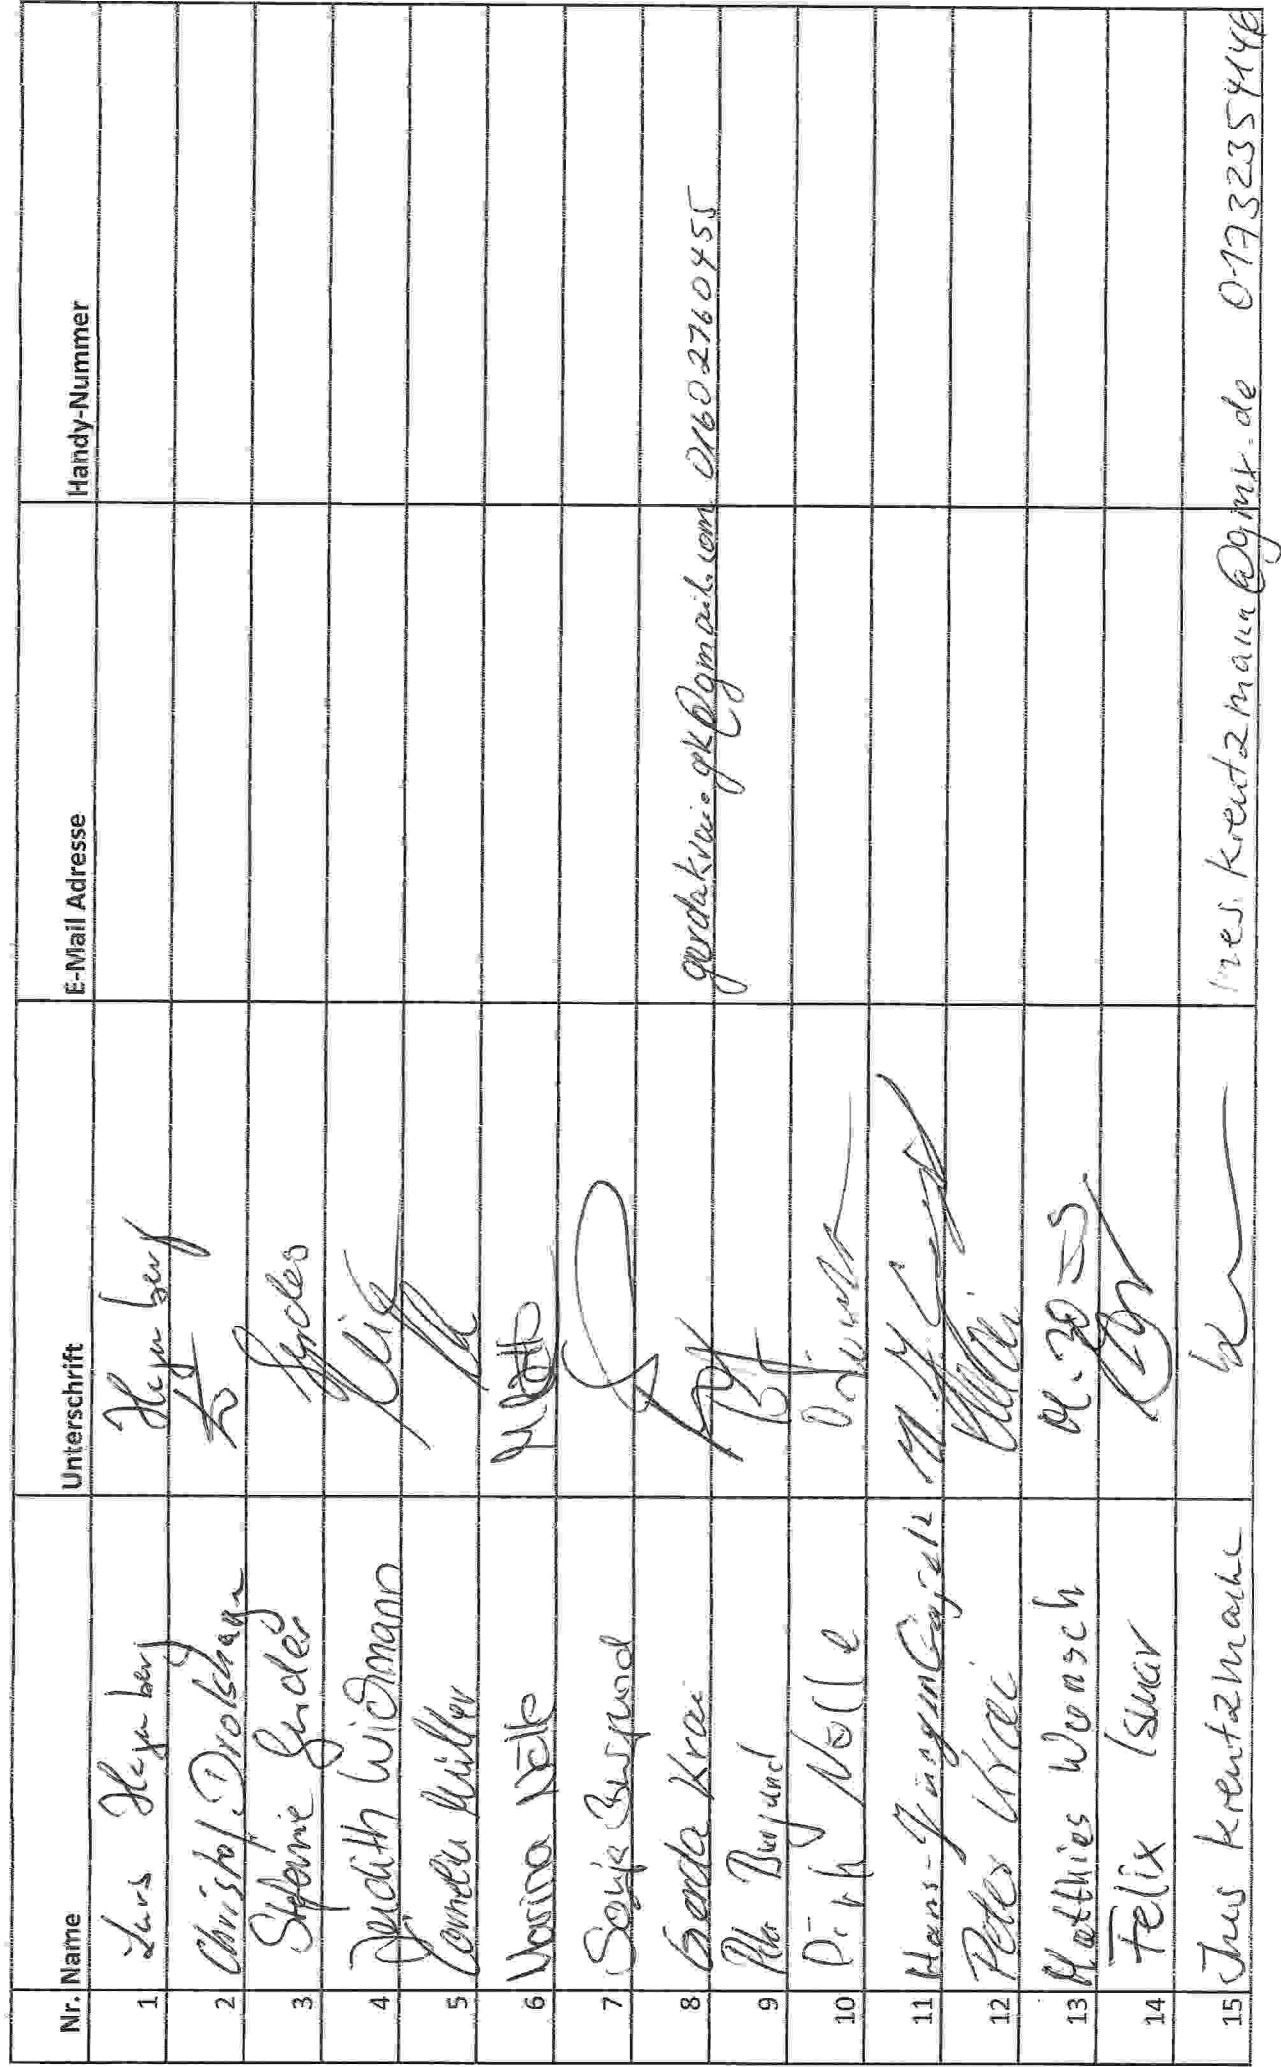 Nr. Name Unterschrift E-Mail Adresse Handy-Nummer
1 Lars Hagenberg Hagenberg
2 Christof Drolshagen
3 Stefanie Snider
4 Judith Widmann
5 Cornelia Müller
6 Marina Nölle
7 Sonja Burgund
8 Gerda Krai gerdakrai.gk@gmail.com 01602760455
9 Peter Burgund
10 Dirk Nölle
11 Hans-Jürgen
12 Peter Krai
13 Matthies Wunsch
14 Felix Ismar
15 Ines Kreutzmann ines.kreutzmann@gmx.de 01732354146